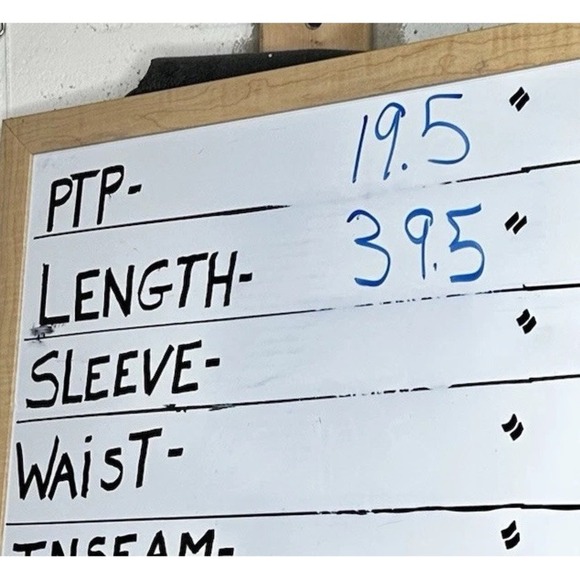 PTP- 19.5 "
LENGTH- 39.5 "
SLEEVE- "
WAiST- "
INSEAM- "